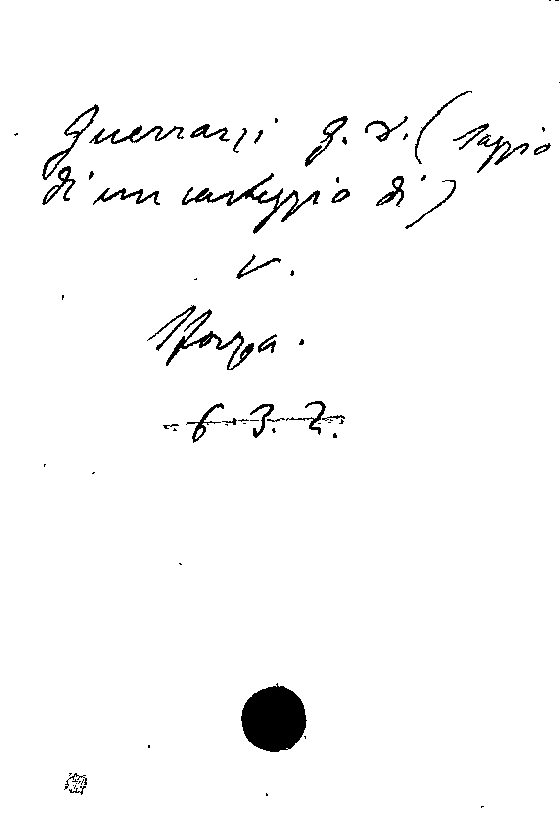 Guerrazzi F. D. (Saggio
di un carteggio di)
v.
Sforza.
6. 3. 2.